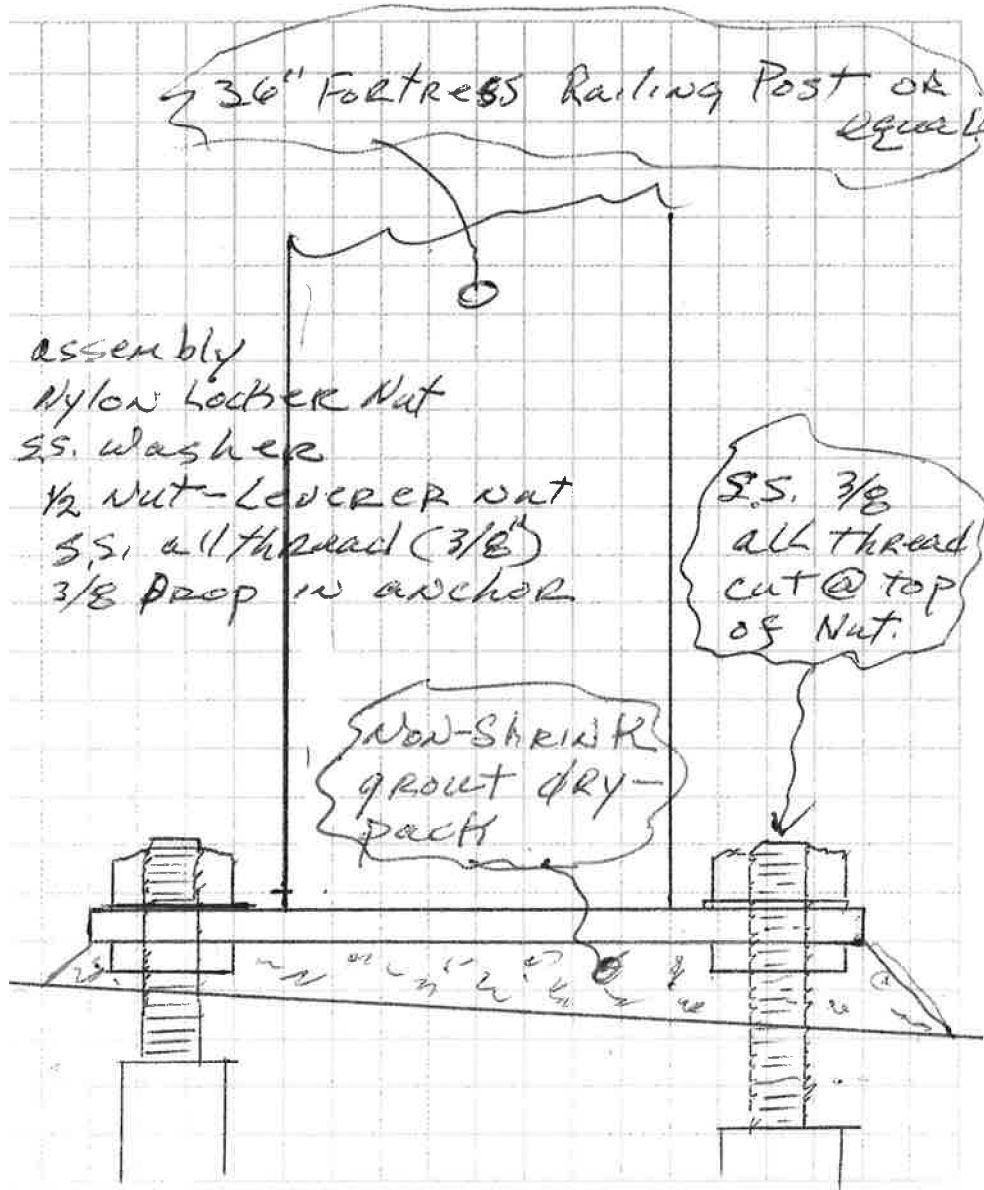 36" FORTRESS Railing Post OR
equal
assembly
Nylon Locker Nut
S.S. washer
1/2 Nut-Leverer Nut
S.S. all thread (3/8")
3/8 DROP IN ANCHOR
S.S. 3/8
all thread
cut @ top
of Nut.
NON-SHRINK
grout dry-
pack